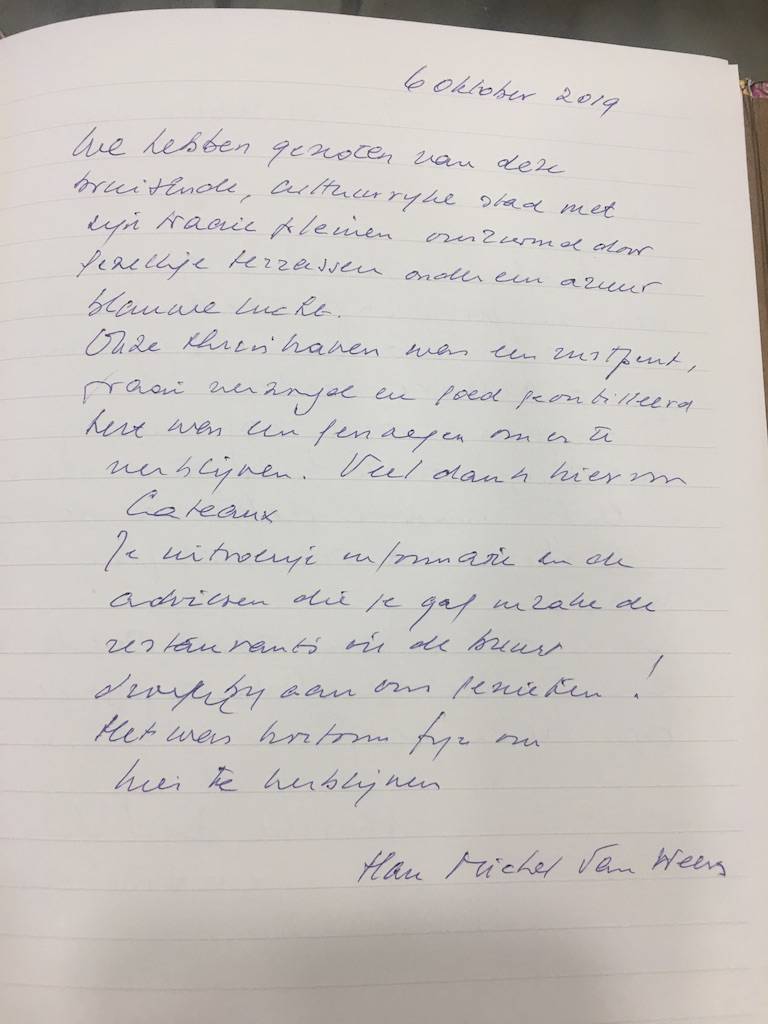 6 Oktober 2019
We hebben genoten van deze
bruisende, cultuurryke stad met
zijn fraaie pleinen omzoomd door
gezellige terrassen onder een azuur
blauwe lucht.
Onze thuishaven was een rustpunt,
fraai verzorgd en goed geoutilleerd
het was een genoegen om er te
verblijven. Veel dank hiervoor
Je uitvoerige informatie en de
adviezen die je gaf inzake de
restaurants in de buurt
droeg bij aan ons genieten!
Het was kortom fijn om
hier te verblijven
Han Michel Van Weers